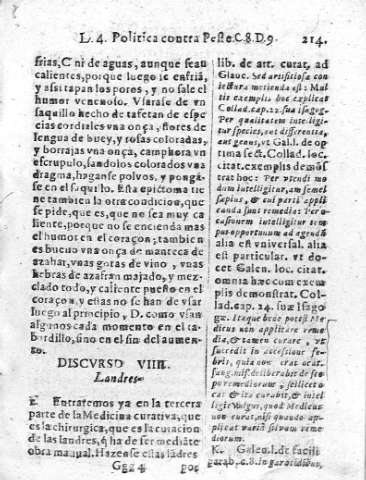 L. 4. Politica contra Peste. C. 8. D. 9. 214.
frias, C ni de aguas, aunque seau
calientes, porque luego se enfriā,
y assi tapan los poros, y no sale el
humor venenoso. Vsarase de vn
saquillo hecho de tafetan de espe
cias cordiales vna onça, flores de
lengua de buey, y rosas coloradas,
y borrajas vna onça, camphora vn
escrupulo, sandolos colorados vna
dragma, haganse polvos, y pongā
se en el saquillo. Esta epictoma tie
ne tambien la otra condicion, que
se pide, que es, que no sea muy ca
liente, porque no se encienda mas
el humor en el coraçon; tambien
es bueno vna onça de manteca de
azahar, vnas gotas de vino, vnas
hebras de azafran majado, y mez-
clado todo, y caliente puesto en el
coraçon, y estas no se han de vsar
luego al principio, D. como vsan
algunos cada momento en el ta-
bardillo, sino en el fin del aumen-
to.
DISCVRSO VIIII.
Landres.
E Entraremos ya en la tercera
parte de la Medicina curativa, que
es la chirurgica, que es la curacion
de las landres, q̄ ha de ser mediāte
obra manual. Hazense estas lādres
Ggg 4 por
lib. de art. curat. ad
Glauc. Sed artificiosa con
iectura metienda est: Mul
tis exemplis hoc explicat
Collad. cap. 22. sua isagog.
Per qualitatem intelligi-
tur species, aut differentia,
aut genus, vt Gal. l. de op
tima sect. Collad. loc.
citat. exemplis demōs
trat hoc: Per vtendi mo
dum intelligitur, an semel
sapius, & cui parti appli
canda sunt remedia: Per o-
casionem intelligitur tem
pus opportunum ad agendū
alia est vniversal. alia
est particular. vt do-
cet Galen. loc. citat.
omnia hæc com exem
plis demonstrat. Col-
lad. cap. 24. suæ Isago
gæ. Itaque bene potest Me
dicus non applicare reme
dia, & tamen curare, vt
succedit in accessione fe-
bris, quia non erat ocat.
sang. mis. deliberabit de tem
pore mediorum, scilicet o
cat & ita curabit, & intel-
ligit Vulgus, quod Medicus
non curat, nisi quando ap-
plicat varia solvum reme
diorum.
K. Galeu. l. de facili
parab. c. 8. In garotidibus,